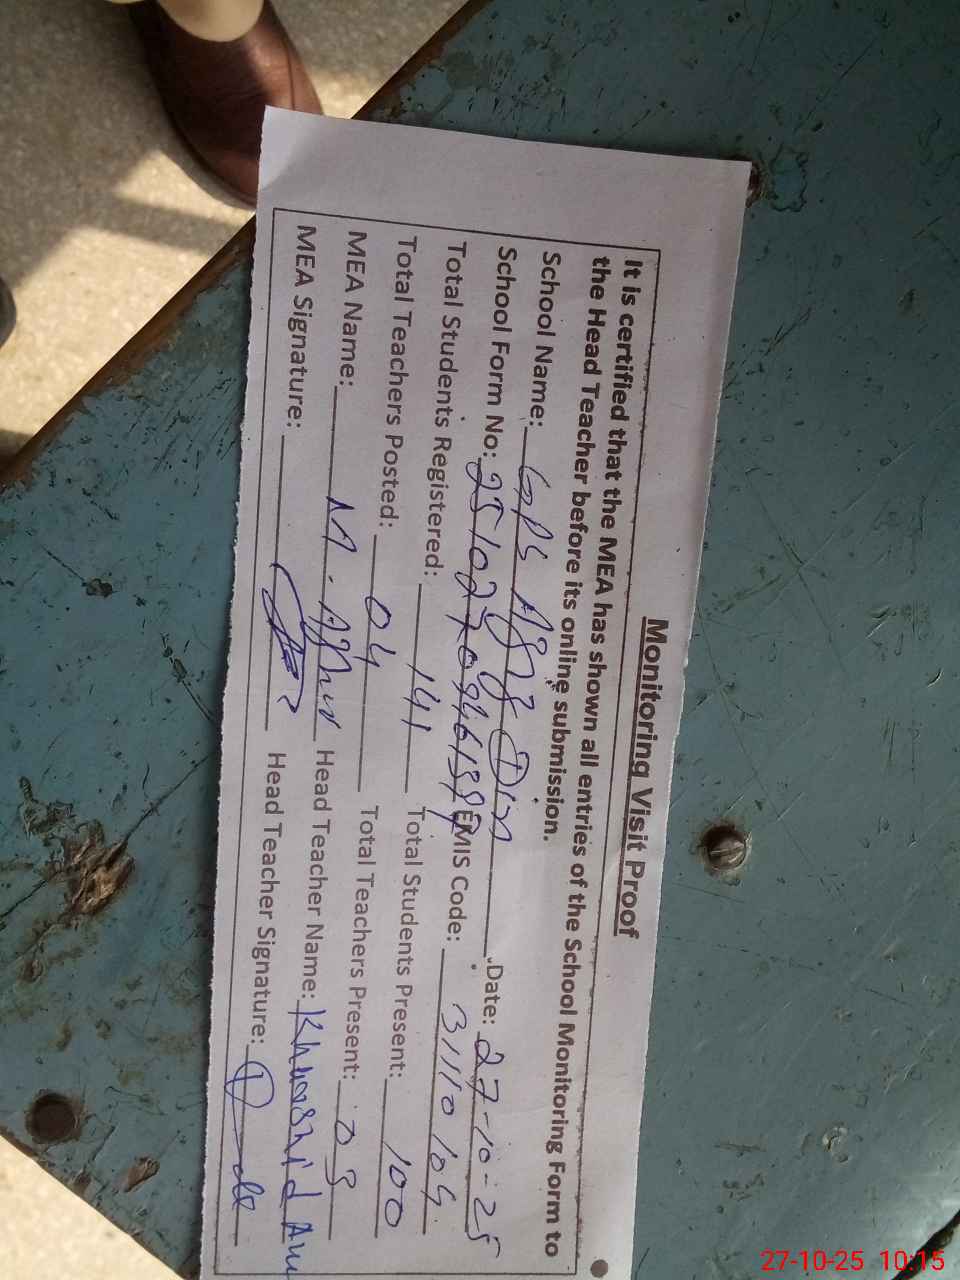 Monitoring Visit Proof
It is certified that the MEA has shown all entries of the School Monitoring Form to
the Head Teacher before its online submission.
School Name: GPS Din Date: 27-10-25
School Form No: EMIS Code: 31110104
Total Students Registered: 141 Total Students Present: 100
Total Teachers Posted: 04 Total Teachers Present: 03
MEA Name: M. Head Teacher Name: Khurshid
MEA Signature: Head Teacher Signature:
27-10-25 10:15